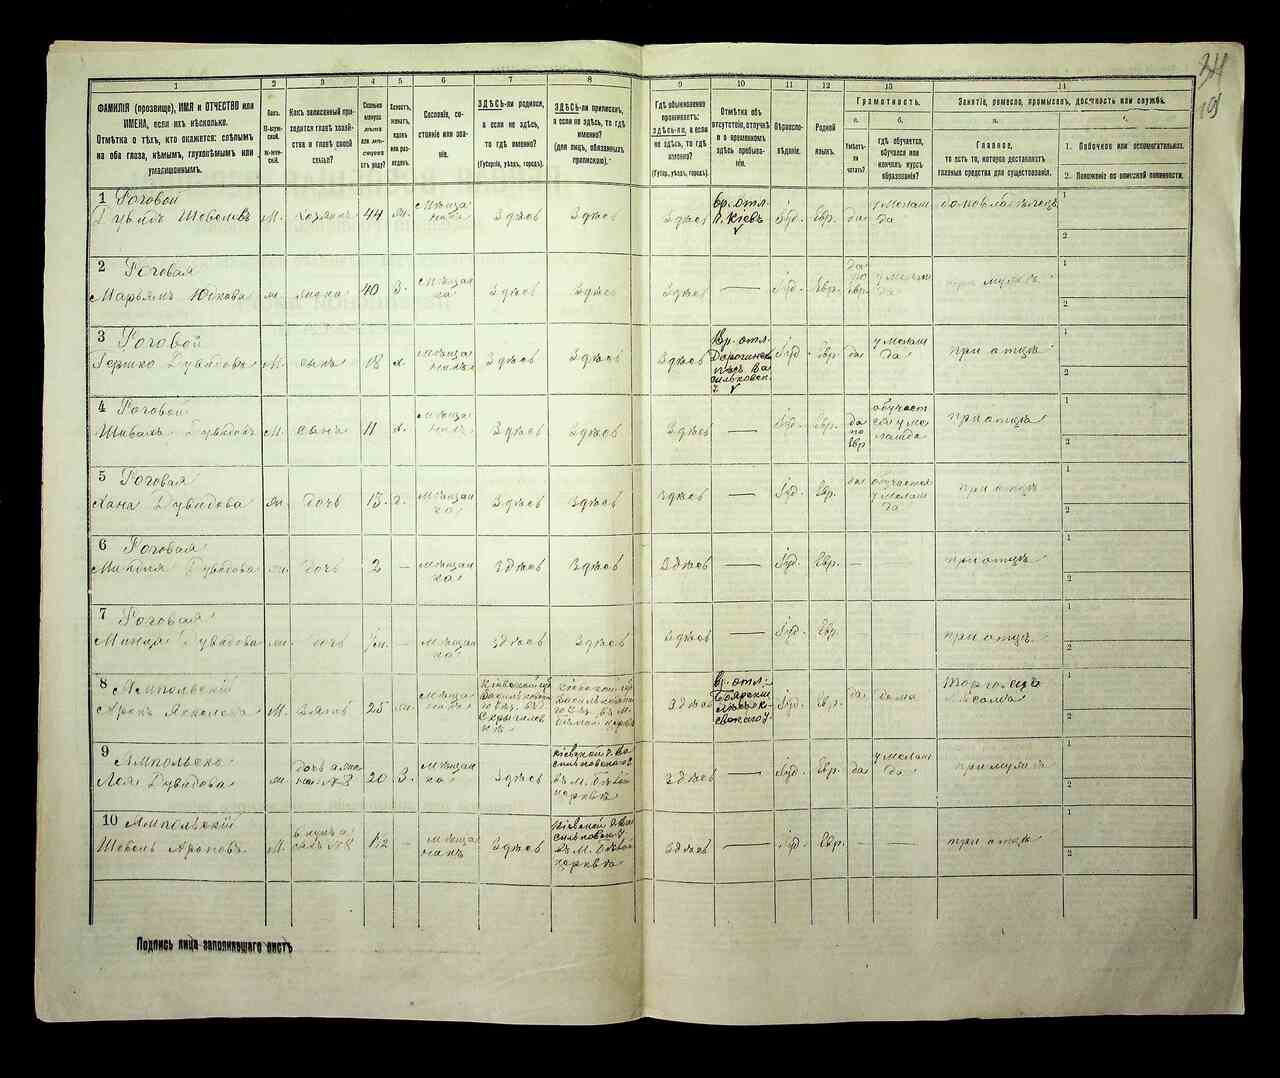 34
19
1 2 3 4 5 6 7 8 9 10 11 12 13 14
ФАМИЛІЯ (прозвище), ИМЯ и ОТЧЕСТВО или
ИМЕНА, если ихъ нѣсколько.
Отмѣтка о тѣхъ, кто окажется: слѣпымъ
на оба глаза, нѣмымъ, глухонѣмымъ или
умалишоннымъ.
Полъ.
М-мужской.
Ж-женскій.
Какъ записанный приходится главѣ хозяйства и главѣ своей семьи?
Сколько минуло лѣтъ или мѣсяцевъ отъ роду?
Холостъ, женатъ, вдовъ или разведенъ.
Сословіе, состояніе или званіе.
ЗДѢСЬ-ли родился,
а если не здѣсь,
то гдѣ именно?
(Губернія, уѣздъ, городъ).
ЗДѢСЬ-ли приписанъ,
а если не здѣсь, то гдѣ
именно?
(для лицъ, обязанныхъ
припискою).
Гдѣ обыкновенно
проживаетъ:
ЗДѢСЬ-ли, а если
не здѣсь, то гдѣ
именно?
(Губер., уѣздъ, городъ).
Отмѣтка объ
отсутствіи, отлучкѣ
и о временномъ
здѣсь пребываніи.
Вѣроисповѣданіе.
Родной
языкъ.
Грамотность.
а.
Умѣетъ-ли
читать?
б.
гдѣ обучается,
обучался или
кончилъ курсъ
образованія?
Занятіе, ремесло, промыселъ, должность или служба.
а.
Главное,
то есть то, которое доставляетъ
главныя средства для существованія.
1. Побочное или вспомогательное.
2. Положеніе по воинской повинности.
1 Роговой
Дувидъ Шевелевъ М. Хозяинъ 44 ж. мѣщанинъ Здѣсь Здѣсь Здѣсь вр. отл. г. Кіевъ Іуд. Евр. да у меламда домовладѣлецъ
1
2
2 Роговая
Марьямъ Юдкова ж. жена 40 з. мѣщанка Здѣсь Здѣсь Здѣсь — Іуд. Евр. да по Евр. у меламда при мужѣ
1
2
3 Роговой
Гершко Дувидовъ М. сынъ 18 х. мѣщанинъ Здѣсь Здѣсь Здѣсь Вр. отл. Іуд. Евр. да у меламда при отцѣ
1
2
4 Роговой
Дувидовъ М. сынъ 11 х. мѣщанинъ Здѣсь Здѣсь Здѣсь — Іуд. Евр. да по Евр. обучается у меламда при отцѣ
1
2
5 Роговая
Хана Дувидова ж. дочь 13 мѣщанка Здѣсь Здѣсь Здѣсь — Іуд. Евр. да обучается у меламда при отцѣ
1
2
6 Роговая
Дувидова ж. дочь 2 — мѣщанка Здѣсь Здѣсь Здѣсь — Іуд. Евр. — — при отцѣ
1
2
7 Роговая
Дувидова ж. дочь — мѣщанка Здѣсь Здѣсь Здѣсь — Іуд. Евр. при отцѣ
1
2
8 Ямпольскій
Аронъ М. Зять 25 ж. мѣщанинъ Кіевской губ. Васильковск. Кіевской губ. Здѣсь вр. отл. Іуд. Евр. да дома торговецъ
1
2
9 Ямпольска
Лея Дувидова ж. дочь 20 з. мѣщанка Здѣсь Кіевской г. Васильковского у. въ м. Бѣлой церквѣ Здѣсь — Іуд. Евр. да у меламда при мужѣ
1
2
10 Ямпольскій
Шевель Ароновъ М. внукъ мѣщанинъ Здѣсь Кіевской г. Васильковск. у. въ м. Бѣлой церквѣ Здѣсь — Іуд. Евр. — — при отцѣ
1
2
Подпись лица заполнявшаго листъ